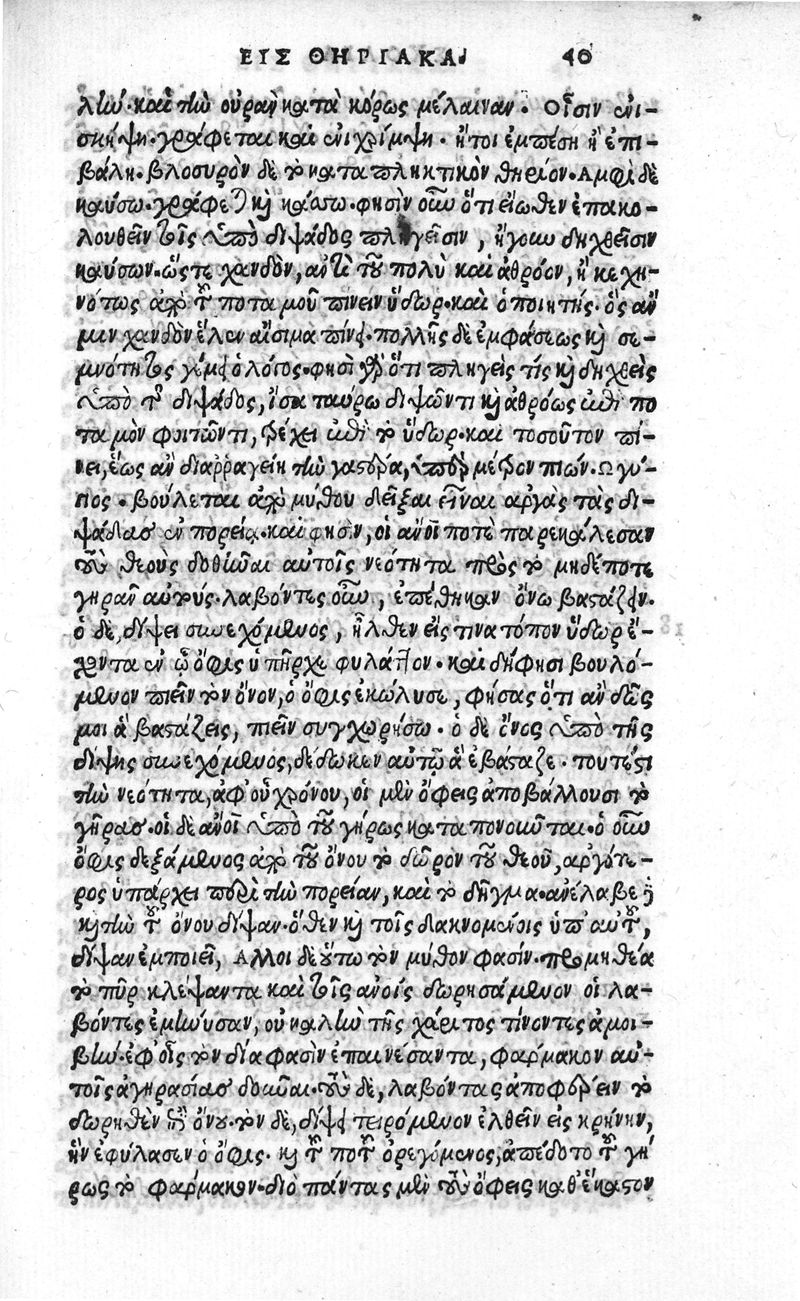 ΕΙΣ ΘΗΡΙΑΚΑ. 40
λὴν· καὶ τὴν οὐρὰν κατὰ κόρως μέλαιναν. Οἷσιν ἐνι-
σκήψῃ. γράφεται καὶ ἐνιχρίμψῃ. ἤτοι ἐμπέσῃ ἢ ἐπι-
βάλῃ. βλοσυρὸν δὲ τὸ καταπληκτικὸν θηρίον. Αμφὶ δὲ
καύσω. γράφεται καὶ κάσω. φησὶν οὖν ὅτι εἴωθεν ἐπακο-
λουθεῖν τοῖς ὑπὸ διψάδος πληγεῖσιν, ἤγουν δηχθεῖσιν
καύσων. ὥστε χανδὸν, ἀντὶ τοῦ πολὺ καὶ ἀθρόον, ἢ κεχη-
νότως ἀπὸ τοῦ ποταμοῦ πίνειν ὕδωρ. καὶ ὁ ποιητής. ὃς ἄν
μιν χανδὸν ἕλῃ αἴσιμα πίνῃ. πολλῆς δὲ ἐμφάσεως καὶ σε-
μνότητος γέμει ὁ λόγος. φησὶ γὰρ ὅτι πληγεὶς τίς καὶ δηχθεὶς
ὑπὸ τῆς διψάδος, ἴσα ταύρῳ διψῶντι καὶ ἀθρόως ἐπὶ πο
ταμὸν φοιτῶντι, τρέχει ἐπὶ τὸ ὕδωρ. καὶ τοσοῦτον πί-
νει, ἕως ἂν διαρραγείη τὴν γαστέρα, ὑπὲρ μέτρον πιών. Ωγύ-
γιος. βούλεται ἀπὸ μύθου δεῖξαι εἶναι ἀργὰς τὰς δι-
ψάδας ἐν πορείᾳ. καὶ φησὶν, οἱ ἄνοι ποτὲ παρεκάλεσαν
τοὺς θεοὺς δοθῆναι αὐτοῖς νεότητα πρὸς τὸ μηδέποτε
γηρᾶν αὐτούς. λαβόντες οὖν, ἐπέθηκαν ὄνῳ βαστάζειν.
ὁ δὲ, δίψει συνεχόμενος, ἦλθεν εἰς τινα τόπον ὕδωρ ἔ-
χοντα ἐν ᾧ ὄφις ὑπῆρχε φυλάττον. καὶ δήφησι βουλό-
μενον πιεῖν τὸν ὄνον, ὁ ὄφις ἐκώλυσε, φήσας ὅτι ἂν δῷς
μοι ἃ βαστάζεις, πιεῖν συγχωρήσω. ὁ δὲ ὄνος ὑπὸ τῆς
δίψης συνεχόμενος, δέδωκεν αὐτῷ ἃ ἐβάσταζε. τουτέστι
τὴν νεότητα, ἀφ' οὗ χρόνου, οἱ μὲν ὄφεις ἀποβάλλουσι τὸ
γῆρας. οἱ δὲ ἄνοι ὑπὸ τοῦ γήρως καταπονοῦνται. ὁ οὖν
ὄφις δεξάμενος ἀπὸ τοῦ ὄνου τὸ δῶρον τοῦ θεοῦ, ἀργότε-
ρος ὑπάρχει περὶ τὴν πορείαν, καὶ τὸ δῆγμα. ἀνέλαβε
καὶ τὴν τοῦ ὄνου δίψαν. ὅθεν καὶ τοῖς δακνομένοις ὑπ' αὐτοῦ,
δίψαν ἐμποιεῖ, Αλλοι δὲ οὕτω τὸν μῦθον φασίν. προμηθέα
τὸ πῦρ κλέψαντα καὶ τοῖς ἀνοις δωρησάμενον οἱ λα-
βόντες ἐμήνυσαν, οὐ καλὴν τῆς χάριτος τίνοντες ἀμοι-
βήν. ἐφ' οἷς τὸν δία φασὶν ἐπαινέσαντα, φάρμακον αὐ-
τοῖς ἀγηρασίας δοῦναι. τοὺς δὲ, λαβόντας ἀποφέρειν τὸ
δωρηθὲν ἐπὶ ὄνου. τὸν δὲ, δίψει τειρόμενον ἐλθεῖν εἰς κρήνην,
ἣν ἐφύλασεν ὁ ὄφις. καὶ τοῦ ποτοῦ ὀρεγόμενος, ἀπέδοτο τοῦ γή
ρως τὸ φάρμακον. διὸ πάντας μὲν τοὺς ὄφεις καθ' ἕκαστον